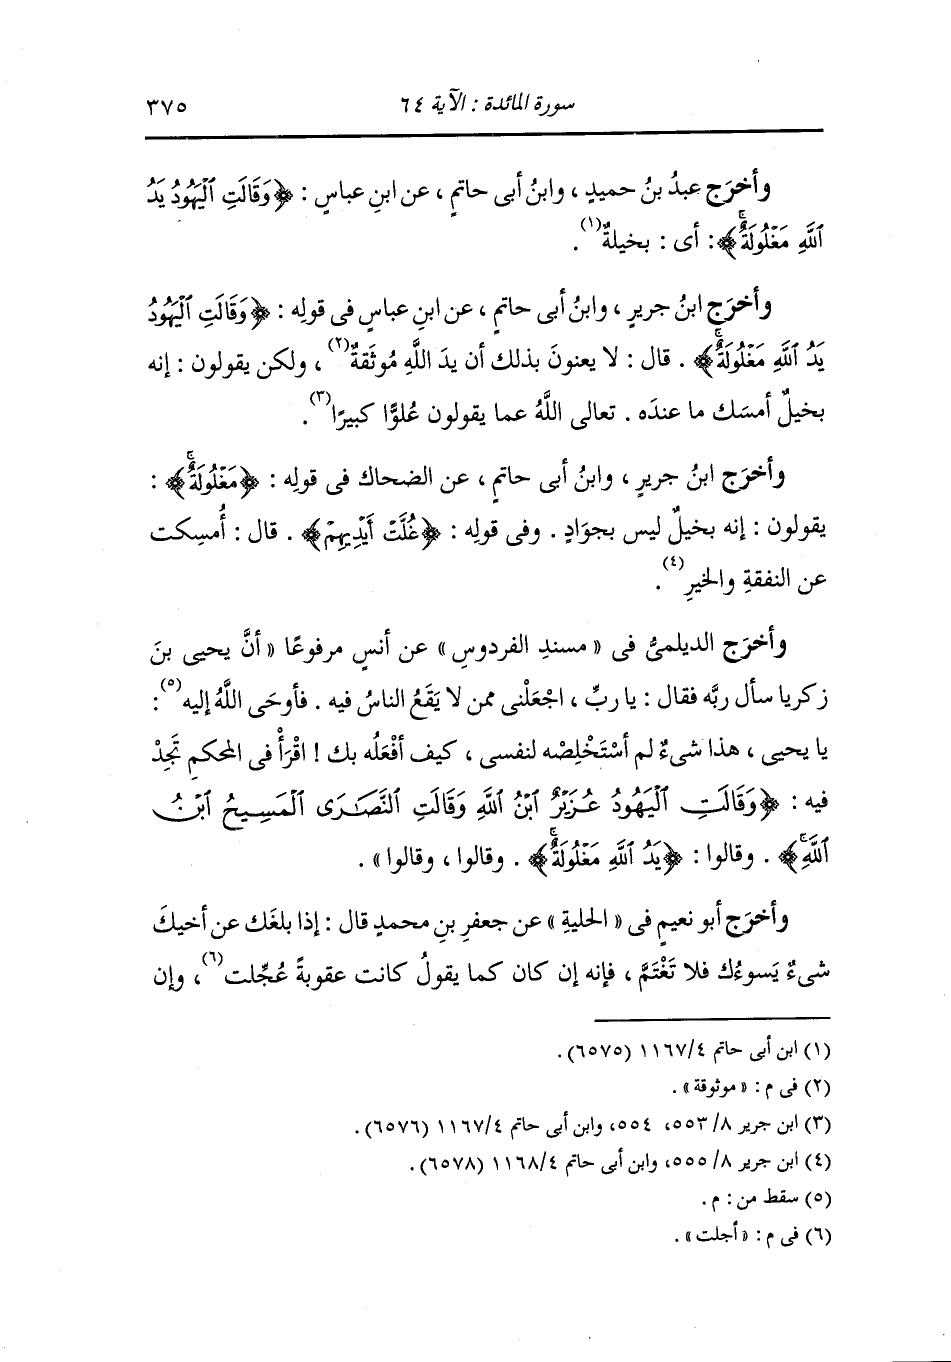 سورة المائدة : الآية ٦٤ ٣٧٥
وأخرَج عبدُ بنُ حميدٍ ، وابنُ أبى حاتمٍ ، عن ابنِ عباسٍ : ﴿وَقَالَتِ ٱلْيَهُودُ يَدُ
ٱللَّهِ مَغْلُولَةٌۚ﴾: أى : بخيلةٌ(١).
وأخرَج ابنُ جريرٍ ، وابنُ أبى حاتمٍ ، عن ابنِ عباسٍ فى قولِه : ﴿وَقَالَتِ ٱلْيَهُودُ
يَدُ ٱللَّهِ مَغْلُولَةٌۚ﴾ . قال : لا يعنونَ بذلك أن يدَ اللَّهِ مُوثَقةٌ(٢) ، ولكن يقولون : إنه
بخيلٌ أمسَك ما عندَه . تعالى اللَّهُ عما يقولون عُلوًّا كبيرًا(٣).
وأخرَج ابنُ جريرٍ ، وابنُ أبى حاتمٍ ، عن الضحاك فى قولِه : ﴿مَغْلُولَةٌۚ﴾ :
يقولون : إنه بخيلٌ ليس بجوَادٍ . وفى قولِه : ﴿غُلَّتْ أَيْدِيهِمْ﴾ . قال : أُمسِكت
عن النفقةِ والخيرِ(٤).
وأخرَج الديلمىُّ فى «مسندِ الفردوسِ» عن أنسٍ مرفوعًا «أنَّ يحيى بنَ
زكريا سأل ربَّه فقال : يا ربِّ ، اجْعَلْنى ممن لا يَقَعُ الناسُ فيه . فأوحَى اللَّهُ إليه(٥):
يا يحيى ، هذا شىءٌ لم أسْتَخْلِصْه لنفسى ، كيف أفْعَلُه بك ! اقْرَأْ فى المحكمِ تَجِدْ
فيه : ﴿وَقَالَتِ ٱلْيَهُودُ عُزَيْرٌ ٱبْنُ ٱللَّهِ وَقَالَتِ ٱلنَّصَارَى ٱلْمَسِيحُ ٱبْنُ
ٱللَّهِۚ﴾ . وقالوا : ﴿يَدُ ٱللَّهِ مَغْلُولَةٌۚ﴾ . وقالوا ، وقالوا» .
وأخرَج أبو نعيمٍ فى «الحليةِ» عن جعفرِ بنِ محمدٍ قال : إذا بلغَك عن أخيكَ
شىءٌ يَسوءُك فلا تَغْتَمَّ ، فإنه إن كان كما يقولُ كانت عقوبةً عُجِّلت(٦)، وإن
(١) ابن أبى حاتم ١١٦٧/٤ (٦٥٧٥).
(٢) فى م : «موثوقة» .
(٣) ابن جرير ٨/ ٥٥٣، ٥٥٤، وابن أبى حاتم ١١٦٧/٤ (٦٥٧٦).
(٤) ابن جرير ٨/ ٥٥٥، وابن أبى حاتم ١١٦٨/٤ (٦٥٧٨).
(٥) سقط من : م .
(٦) فى م : «أجلت» .